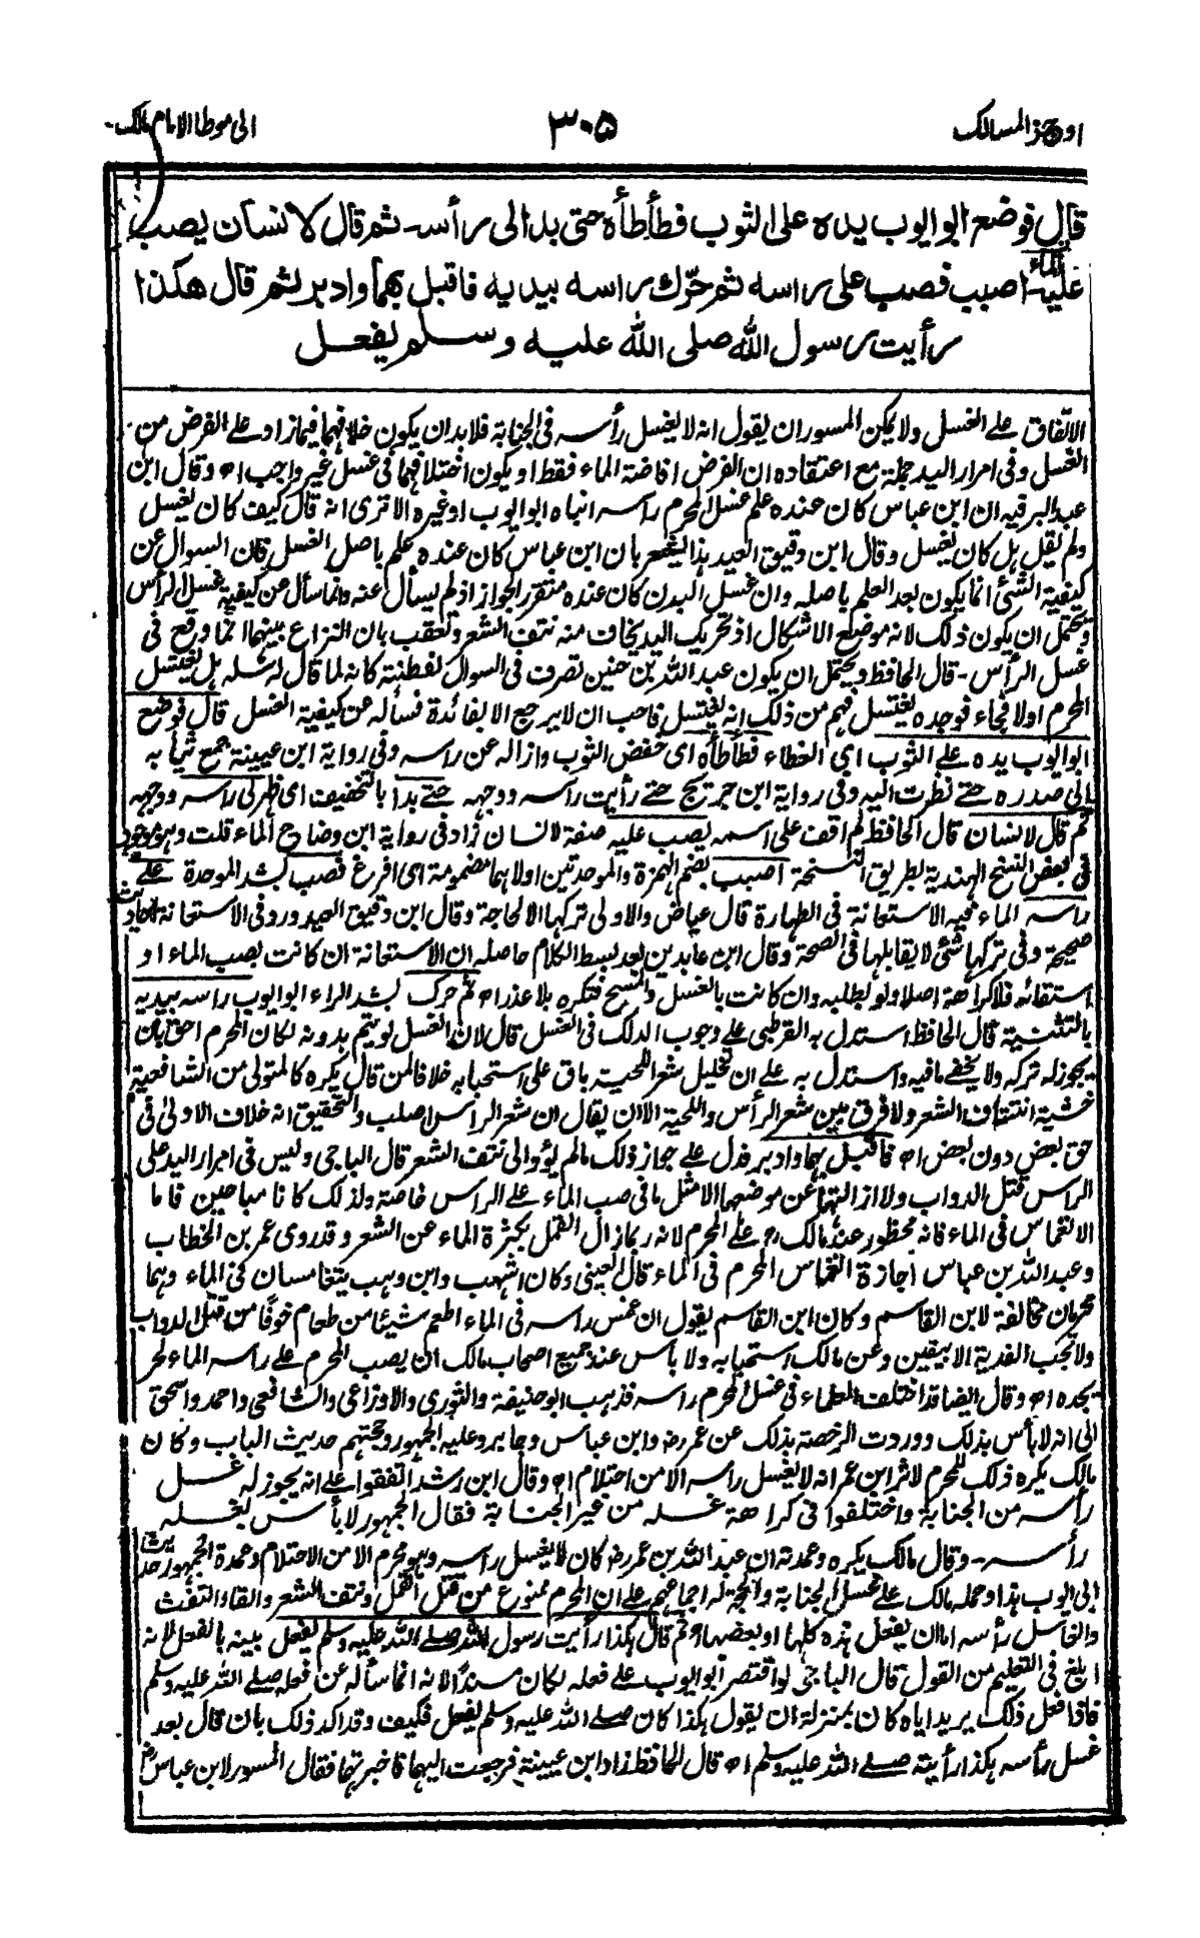 اوجز المسالك
٣٠٥
الى موطا الامام مالك
قال فوضع ابو ايوب يده على الثوب فطأطأه حتى بدا لى رأسه ثم قال لانسان يصب
عليه الماء اصبب فصب على راسه ثم حرّك راسه بيديه فاقبل بهما وادبر ثم قال هكذا
رأيت رسول الله صلى الله عليه وسلم يفعل
الاتفاق على الغسل ولا يمكن المسور ان يقول انه لا يغسل رأسه فى الجنابة فلا بد ان يكون خلافهما فيما زاد على الفرض من
الغسل وفى امرار اليد جملة مع اعتقاده ان الفرض افاضة الماء فقط او يكون اختلافهما فى غسل غير واجب اھ وقال ابن
عبد البر فيه ان ابن عباس كان عنده علم غسل المحرم راسه انباه ابو ايوب او غيره الا ترى انه قال كيف كان يغسل
ولم يقل هل كان يغسل وقال ابن دقيق العيد هذا يشعر بان ابن عباس كان عنده علم باصل الغسل فان السوال عن
كيفية الشئ انما يكون بعد العلم باصله وان غسل البدن كان عنده متقرر الجواز اذ لم يسأل عنه وانما سأل عن كيفية غسل الرأس
ويحتمل ان يكون ذلك لانه موضع الاشكال اذ تحريك اليد يخاف منه نتف الشعر وتعقب بان النزاع بينهما انما وقع فى
غسل الرأس۔ قال الحافظ ويحتمل ان يكون عبد الله بن حنين تصرف فى السوال لفطنته كانه لما قال له سله هل يغتسل
المحرم او لا فجاء فوجده يغتسل فهم من ذلك انه يغتسل فاحب ان لا يرجع الا بفائدة فسأله عن كيفية الغسل قال فوضع
ابو ايوب يده على الثوب اى الغطاء فطأطأه اى خفض الثوب وازاله عن راسه وفى رواية ابن عيينة جمع ثيابه
الى صدره حتى نظرت اليه وفى رواية ابن جريج حتى رأيت راسه ووجهه حتى بدا بالتخفيف اى ظهر لى راسه ووجهه
ثم قال لانسان قال الحافظ لم اقف على اسمه يصب عليه صفة لانسان زاد فى رواية ابن وضاح الماء قلت وهو موجود
فى بعض النسخ الهندية بطريق النسخة اصبب بضم الهمزة والموحدتين اولاهما مضمومة اى افرغ فصب بشد الموحدة على
راسه الماء فيه الاستعانة فى الطهارة قال عياض والاولى تركها الا لحاجة وقال ابن دقيق العيد ورد فى الاستعانة احاديث
صحيحة وفى تركها شئ لا يقابلها فى الصحة وقال ابن عابدين بعد بسط الكلام حاصله ان الاستعانة ان كانت بصب الماء او
استقائه فلا كراهة اصلا ولو بطلبه وان كانت بالغسل والمسح فتكره بلا عذر اھ ثم حرك بشد الراء ابو ايوب راسه بيديه
بالتثنية قال الحافظ استدل به القرطبى على وجوب الدلك فى الغسل قال لان الغسل لو يتم بدونه لكان المحرم احق بان
يجوز له تركه ولا يخفى ما فيه واستدل به على ان تخليل شعر اللحية باق على استحبابه خلافا لمن قال يكره كالمتولى من الشافعية
خشية انتتاف الشعر ولا فرق بين شعر الرأس واللحية الا ان يقال ان شعر الراس اصلب والتحقيق انه خلاف الاولى فى
حق بعض دون بعض اھ فاقبل بهما وادبر فدل على جواز ذلك ما لم يؤد الى نتف الشعر قال الباجى وليس فى امرار اليد على
الراس قتل الدواب ولا ازالتها عن موضعها الا مثل ما فى صب الماء على الراس خاصة ولذلك كانا مباحين فاما
الانغماس فى الماء فانه محظور عند مالك على المحرم لانه ربما زال القمل بكثرة الماء عن الشعر وقد روى عمر بن الخطاب
وعبد الله بن عباس اجازة انغماس المحرم فى الماء قال العينى وكان اشهب وابن وهب يتغامسان فى الماء وهما
محرمان مخالفة لابن القاسم وكان ابن القاسم يقول ان غمس راسه فى الماء اطعم شيئا من طعام خوفا من قتل الدواب
ولا تجب الفدية الا بيقين وعن مالك استحبابه ولا باس عند جميع اصحاب مالك ان يصب المحرم على راسه الماء لحر
يجده اھ وقال ايضا قد اختلف العلماء فى غسل المحرم راسه فذهب ابو حنيفة والثورى والاوزاعى والشافعى واحمد واسحق
الى انه لا بأس بذلك ووردت الرخصة بذلك عن عمر رضى وابن عباس وجابر وعليه الجمهور وحجتهم حديث الباب وكان
مالك يكره ذلك للمحرم لاثر ابن عمر انه لا يغسل راسه الا من احتلام اھ وقال ابن رشد اتفقوا على انه يجوز له غسل
رأسه من الجنابة واختلفوا فى كراهة غسله من غير الجنابة فقال الجمهور لا بأس بغسله
رأسه۔ وقال مالك يكره وعمدته ان عبد الله بن عمر رض كان لا يغسل راسه وهو محرم الا من الاحتلام وعمدة الجمهور حديث
ابى ايوب هذا وحمله مالك على غسل الجنابة والحجة له اجماعهم على ان المحرم ممنوع من قتل القمل ونتف الشعر والقاء التفث
والغاسل رأسه اما ان يفعل هذه كلها او بعضها اھ ثم قال هكذا رأيت رسول الله صلى الله عليه وسلم يفعل بينه بالفعل لانه
ابلغ فى التعليم من القول قال الباجى لو اقتصر ابو ايوب على فعله لكان مسندًا لانه انما سأله عن فعله صلى الله عليه وسلم
فاذا فعل ذلك يريد اياه كان بمنزلة ان يقول هكذا كان صلى الله عليه وسلم يفعل فكيف وقد اكد ذلك بان قال بعد
غسل رأسه هكذا رأيته صلى الله عليه وسلم اھ قال الحافظ زاد ابن عيينة فرجعت اليهما فاخبرتهما فقال المسور لابن عباس رض